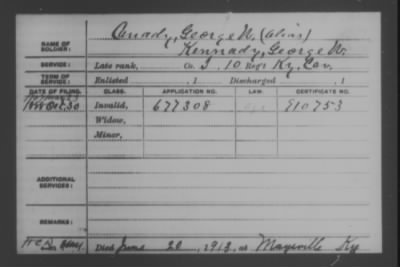 Canady, George W. (alias)
NAME OF SOLDIER: Kennady, George W.
SERVICE: Late rank, Co. I, 10 Reg't Ky. Cav.
TERM OF SERVICE: Enlisted , 1 Discharged , 1
DATE OF FILING. CLASS. APPLICATION NO. LAW. CERTIFICATE NO.
Oct. 30 Invalid, 677308 910753
Widow,
Minor,
ADDITIONAL SERVICES:
REMARKS:
Died June 20, 1913, at Maysville Ky